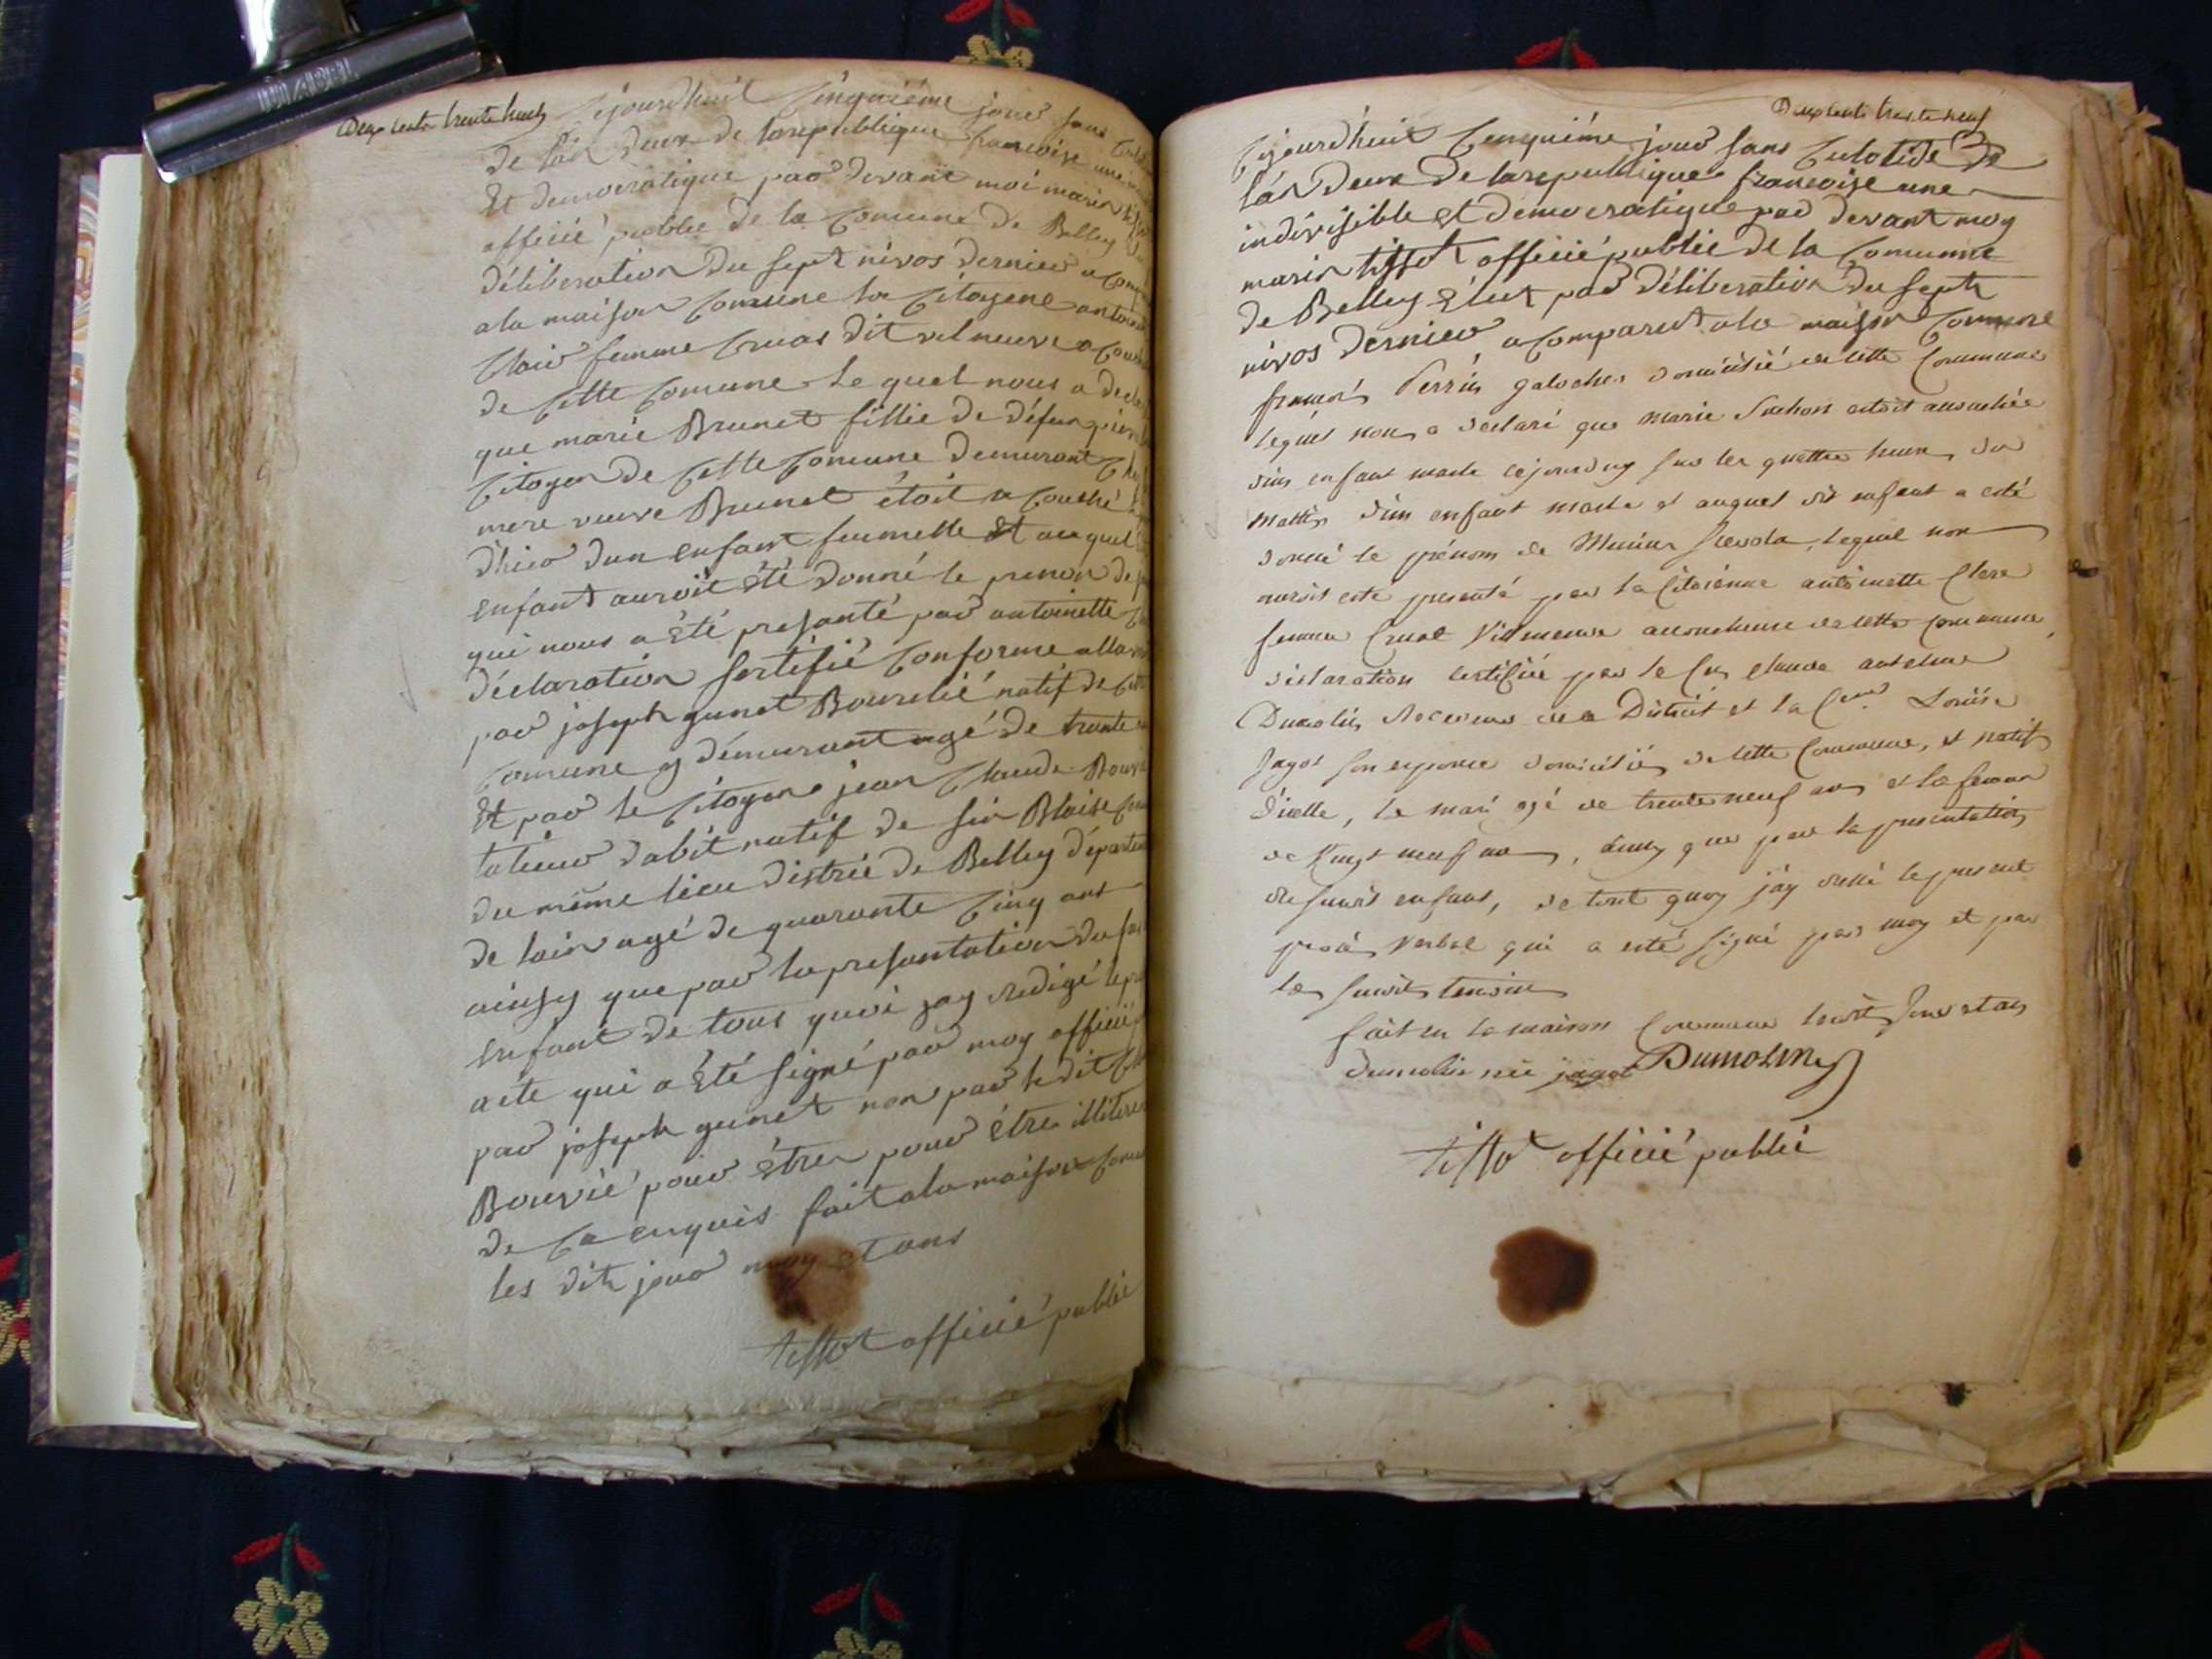 Deux cents trente huit
Cejourdhuit Cinquiéme jour sans
de lan deux de la republique francoise une
Et democratique par devant moi marin
officié public de la Comune de Belley
déliberation du sept nivos dernier a
a la maison Comune la Citoyene
Clair femme Cruas dit vilneuve
de Cette Comune le quel nous a
que marie Brunet fillie de défun
Citoyen de Cette Comune demurant
mere veuve Brunet étoit a Couché
d'hier dun enfant fummelle Et au quel
enfant auroit été donné le prenon de
qui nous a été presanté par antoinette
déclaration sertifié Conforme alla
par joseph gunet Bourelié natif de
Comune y démurant agé de trante
Et par le Citoyen jean Claude
talieur dabit natif de sin Blaise
du même lieu distric de Belley
de lain agé de quarante Cinq ans
ainsy que par la presantation du
enfant de tous quoi jay redigé le
acte qui a été signé par moy officié
par joseph gunet non par le dit
Bouvié pour être pour étre
de Ca enquis fait a la maison
les dits jour moy et ans
tissot officié public
Deux cents trente neuf
Cejourd'huit Cinquiéme jour sans Culotide De
l'an Deux De la republique francoise une
indivisible et democratique par devant moy
marin tissot officié public de la Comunne
de Belley élut par déliberation du sept
nivos dernier a Comparut a la maison Comune
francois Perrin galochier domicilié de cette Commune
lequel nous a declaré que marie Suchon etoit accouchée
d'un enfant masle cejourduy sur les quattre heures du
mattin d'un enfant masle et auquel dit enfant a esté
donné le prénom de Scevola, lequel nous
auroit esté presenté par la Citoienne antoinette Clere
femme Cruat Vilneuve accoucheuse de cette commune,
déclaration certifiée par le Cen claude anthelme
Dumolin Receveur de District et la Cenne Louise
Jagot son espouse domiciliés de cette Commune, et natifs
d'icelle, le mari agé de trente neuf ans et la femme
de Vingt neuf ans, ainsy que par la presentation
du susdit enfant, de tout quoy j'ay dressé le present
procès Verbal qui a esté signé par moy et par
les susdits temoins
fait en la maison Commune lesdits jour et an
Dumolin née jagot DUMOLIN
tissot officié publié